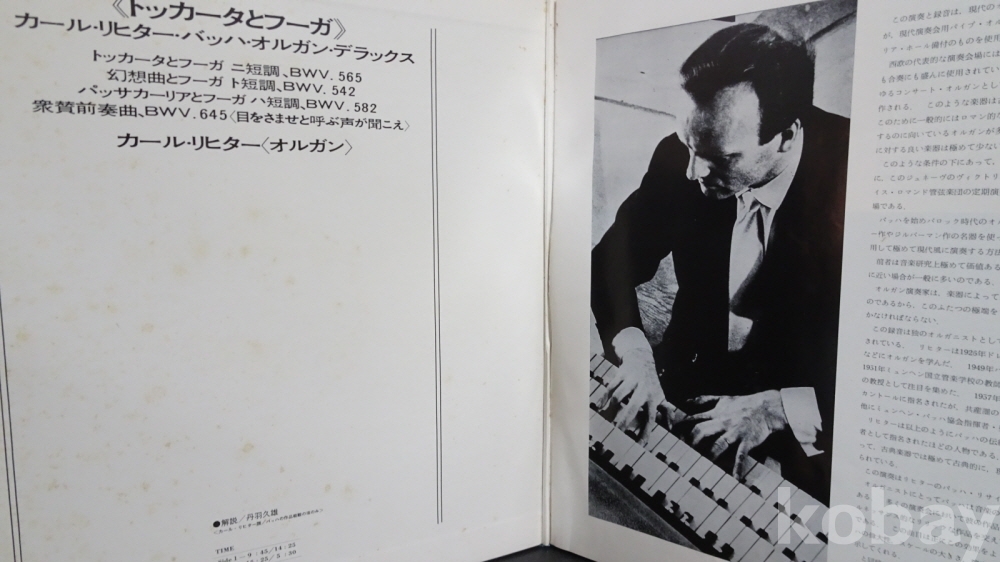 《トッカータとフーガ》
カール・リヒター・バッハ・オルガン・デラックス
トッカータとフーガ ニ短調、BWV. 565
幻想曲とフーガ ト短調、BWV. 542
パッサカーリアとフーガ ハ短調、BWV. 582
衆賛前奏曲、BWV. 645〈目をさませと呼ぶ声が聞こえ〉
カール・リヒター〈オルガン〉
●解説／丹羽久雄
TIME
Side 1－9:45/14:25
この演奏と録音は、現代のオ
が、現代演奏会用パイプ・オル
リア・ホール備付のものを使用
西欧の代表的な演奏会場には
も合奏にも盛んに使用されてい
ゆるコンサート・オルガンとし
作される。 このような楽器は
このために一般的にはロマン的な
するのに向いているオルガンが
に対する良い楽器は極めて少ない
このような条件の下にあって、
に、このジュネーヴのヴィクトリ
イス・ロマンド管弦楽団の定期演
場である。
バッハを始めバロック時代のオ
ー作やジルバーマン作の名器を使っ
用して極めて現代風に演奏する方法
前者は音楽研究上極めて価値ある
に近い場合が一般に多いのである。
オルガン演奏家は、楽器によって
のであるから、このふたつの極端を
かなければならない。
この録音は独のオルガニストとし
されている。 リヒターは1926年ドレ
などにオルガンを学んだ。 1949年
1951年ミュンヘン国立音楽学校の教師
の教授として注目を集めた。 1957年
カントールに指名されたが、共産圏の
他にミュンヘン・バッハ協会指揮者・
リヒターは以上のようにバッハの伝
者として指名されたほどの人物である。
って、古典楽器では極めて古典的に、
られている。
この演奏はリヒターのバッハ・リサ
kobay